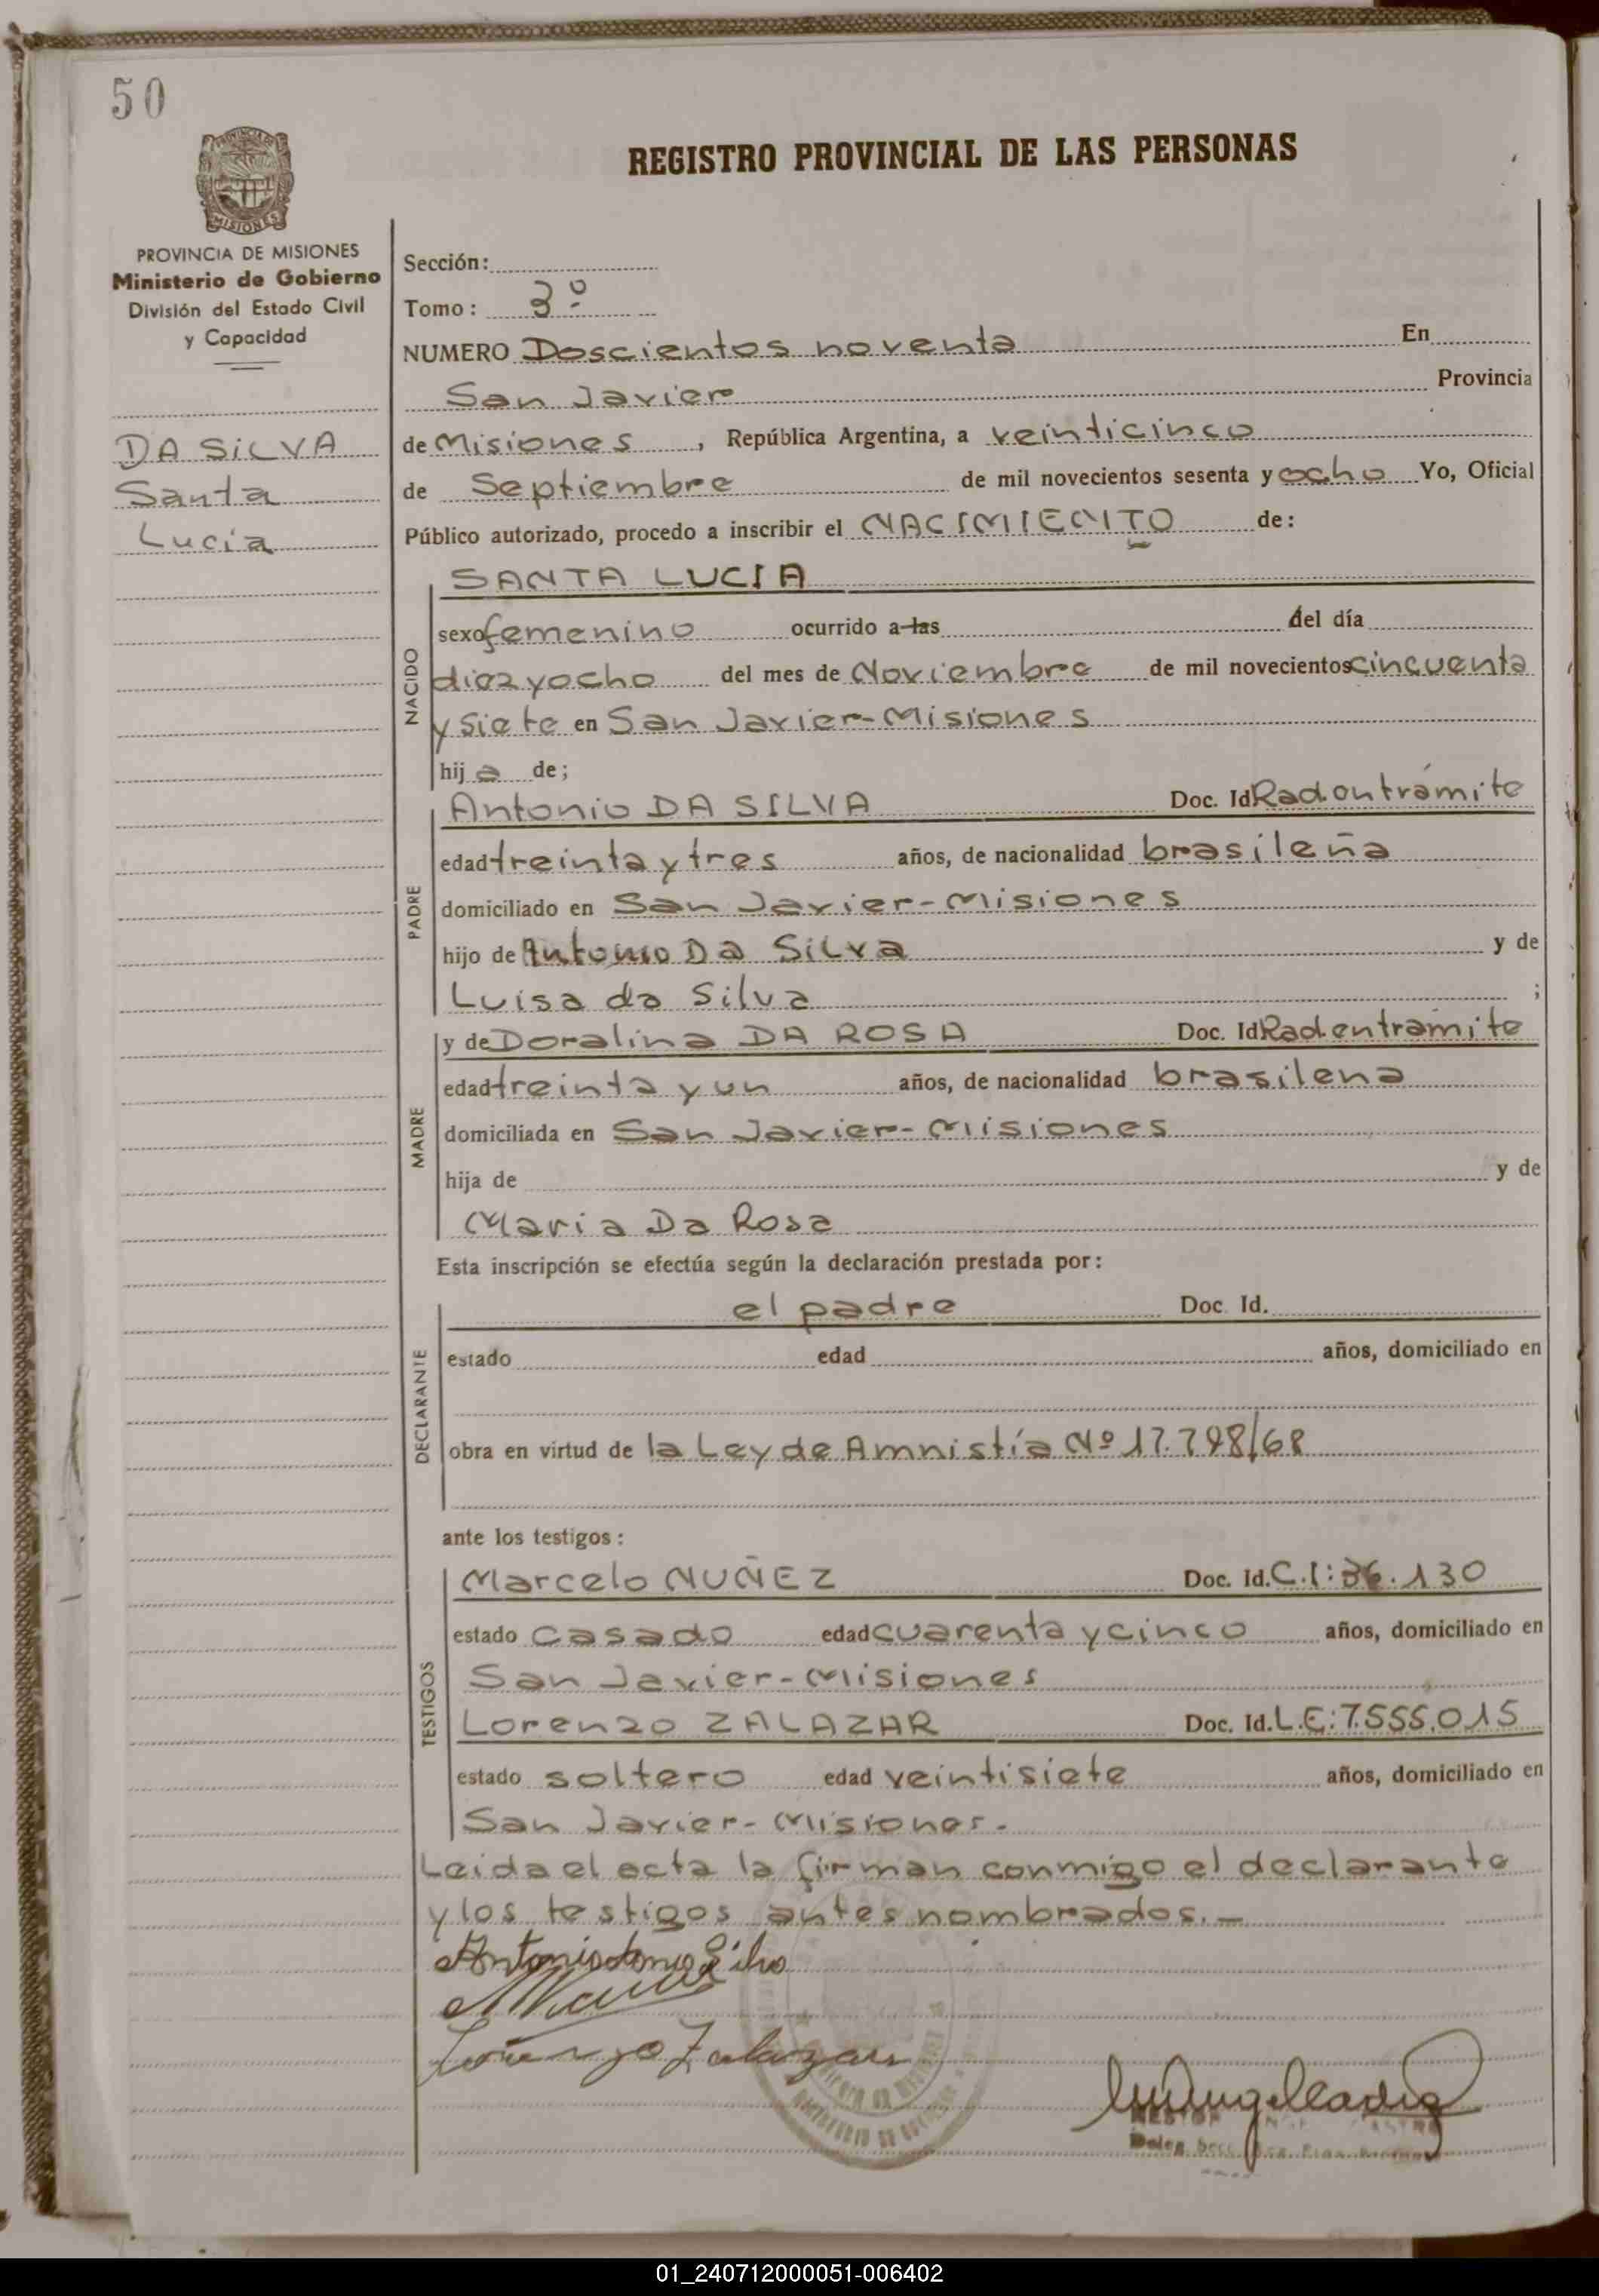 50
PROVINCIA DE MISIONES
Ministerio de Gobierno
División del Estado Civil
y Capacidad
DA SILVA
Santa
Lucía
REGISTRO PROVINCIAL DE LAS PERSONAS
Sección:
Tomo: 3º
NUMERO Doscientos noventa En
San Javier Provincia
de Misiones, República Argentina, a veinticinco
de Septiembre de mil novecientos sesenta y ocho Yo, Oficial
Público autorizado, procedo a inscribir el NACIMIENTO de:
NACIDO
SANTA LUCIA
sexo femenino ocurrido a las del día
diez y ocho del mes de Noviembre de mil novecientos cincuenta
y siete en San Javier-Misiones
hij a de;
PADRE
Antonio DA SILVA Doc. Id. Rad. en trámite
edad treinta y tres años, de nacionalidad brasileña
domiciliado en San Javier-Misiones
hijo de Antonio Da Silva y de
Luisa da Silva ;
MADRE
y de Doralina DA ROSA Doc. Id. Rad. en tramite
edad treinta y un años, de nacionalidad brasilena
domiciliada en San Javier-Misiones
hija de y de
Maria Da Rosa
Esta inscripción se efectúa según la declaración prestada por:
DECLARANTE
el padre Doc. Id.
estado edad años, domiciliado en
obra en virtud de la Ley de Amnistía Nº 17.798/68
ante los testigos:
TESTIGOS
Marcelo NUÑEZ Doc. Id. C.I: 36.130
estado casado edad cuarenta y cinco años, domiciliado en
San Javier-Misiones
Lorenzo ZALAZAR Doc. Id. L.E: 7.555.015
estado soltero edad veintisiete años, domiciliado en
San Javier-Misiones.
Leida el acta la firman conmigo el declarante
y los testigos antes nombrados.-
Lorenzo Zalazar
01_240712000051-006402